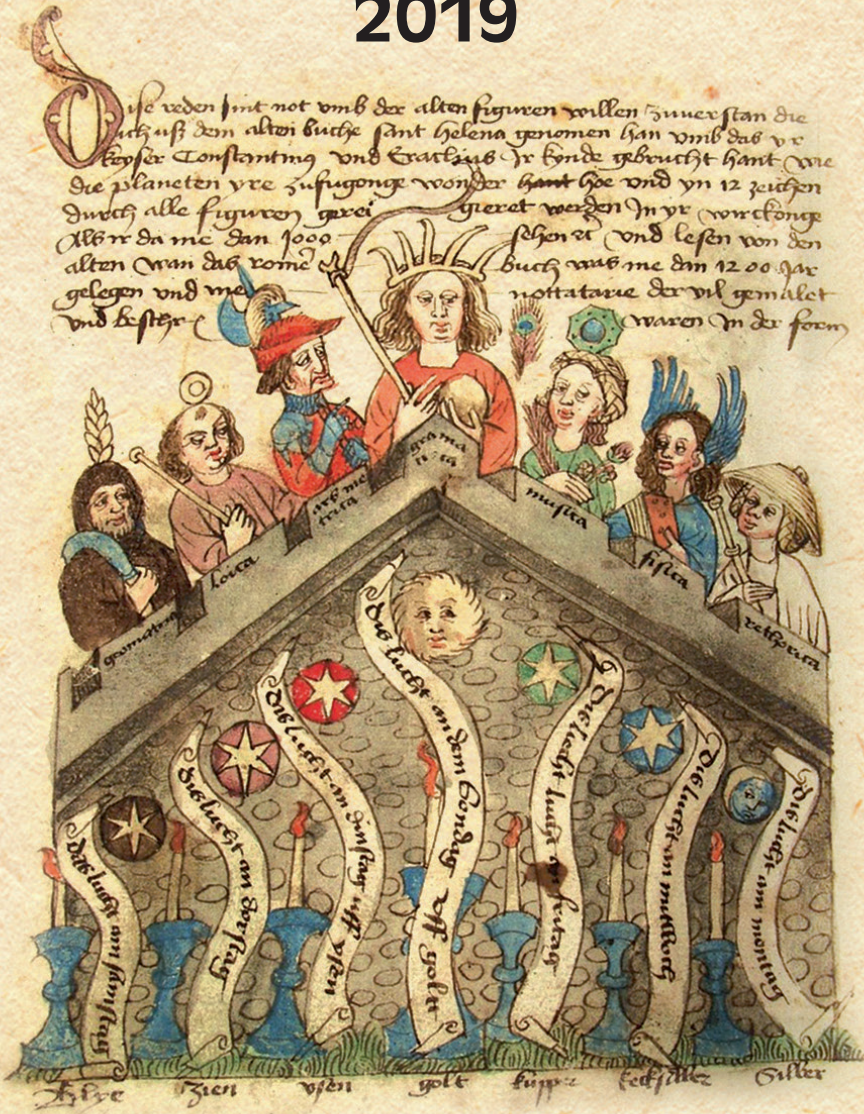 2019
Dise reden sint not vmb der alten figuren willen zuuerstan die
ich vß dem alten buche sant Helena genomen han vmb das yr
keyser Constantinus vnd Eraclius Ir kynde gebrucht hant wie
die planeten yre zufugonge wonder hant hoe vnd yn 12 zeichen
durch alle figuren gerei gieret werden In yr wirckonge
Als ir da me dan 1000 sehen vnd lesen von den
alten wan das rome buch was me dan 1200 Jar
gelegen vnd me der vil gemalet
vnd beschr waren In der form
grama
tica
arsme
trica
musica
loica
fisica
geometria
rethorica
das lucht am samstag
das lucht an dorstag
das lucht an dinstag vff ysen
das lucht an dem Sondag vff golt
Das lucht an fritag
Das lucht an mittwoch
Das lucht am montag
Blye zien ysen golt kupper kecksilber Silber